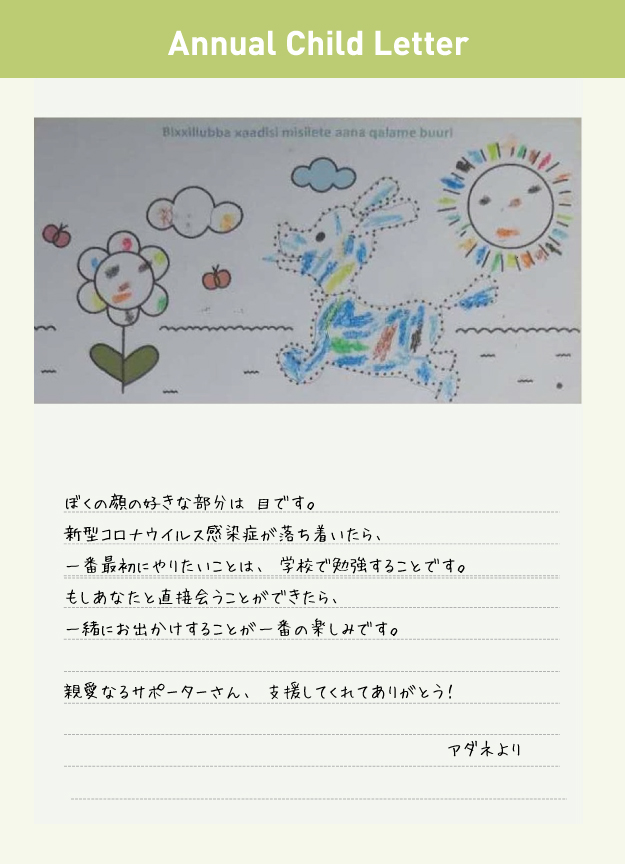 Annual Child Letter
Bixxillubba xaadisi misilete aana qalame buuri
ぼくの顔の好きな部分は 目です。
新型コロナウイルス感染症が落ち着いたら、
一番最初にやりたいことは、 学校で勉強することです。
もしあなたと直接会うことができたら、
一緒にお出かけすることが一番の楽しみです。
親愛なるサポーターさん、 支援してくれてありがとう！
アダネより